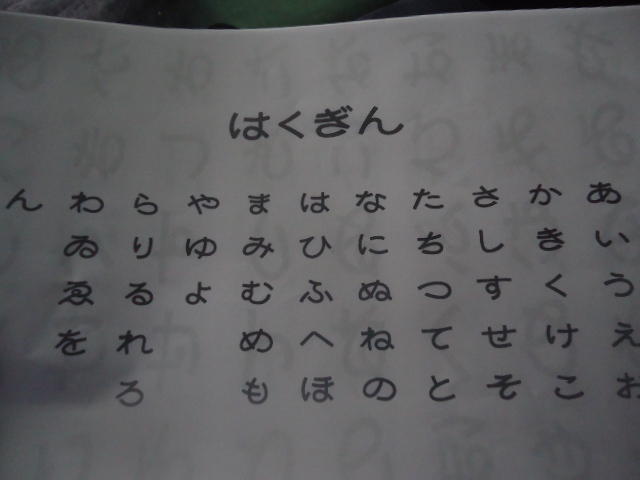 はくぎん
あいうえお
かきくけこ
さしすせそ
たちつてと
なにぬねの
はひふへほ
まみむめも
やゆよ
らりるれろ
わゐゑを
ん